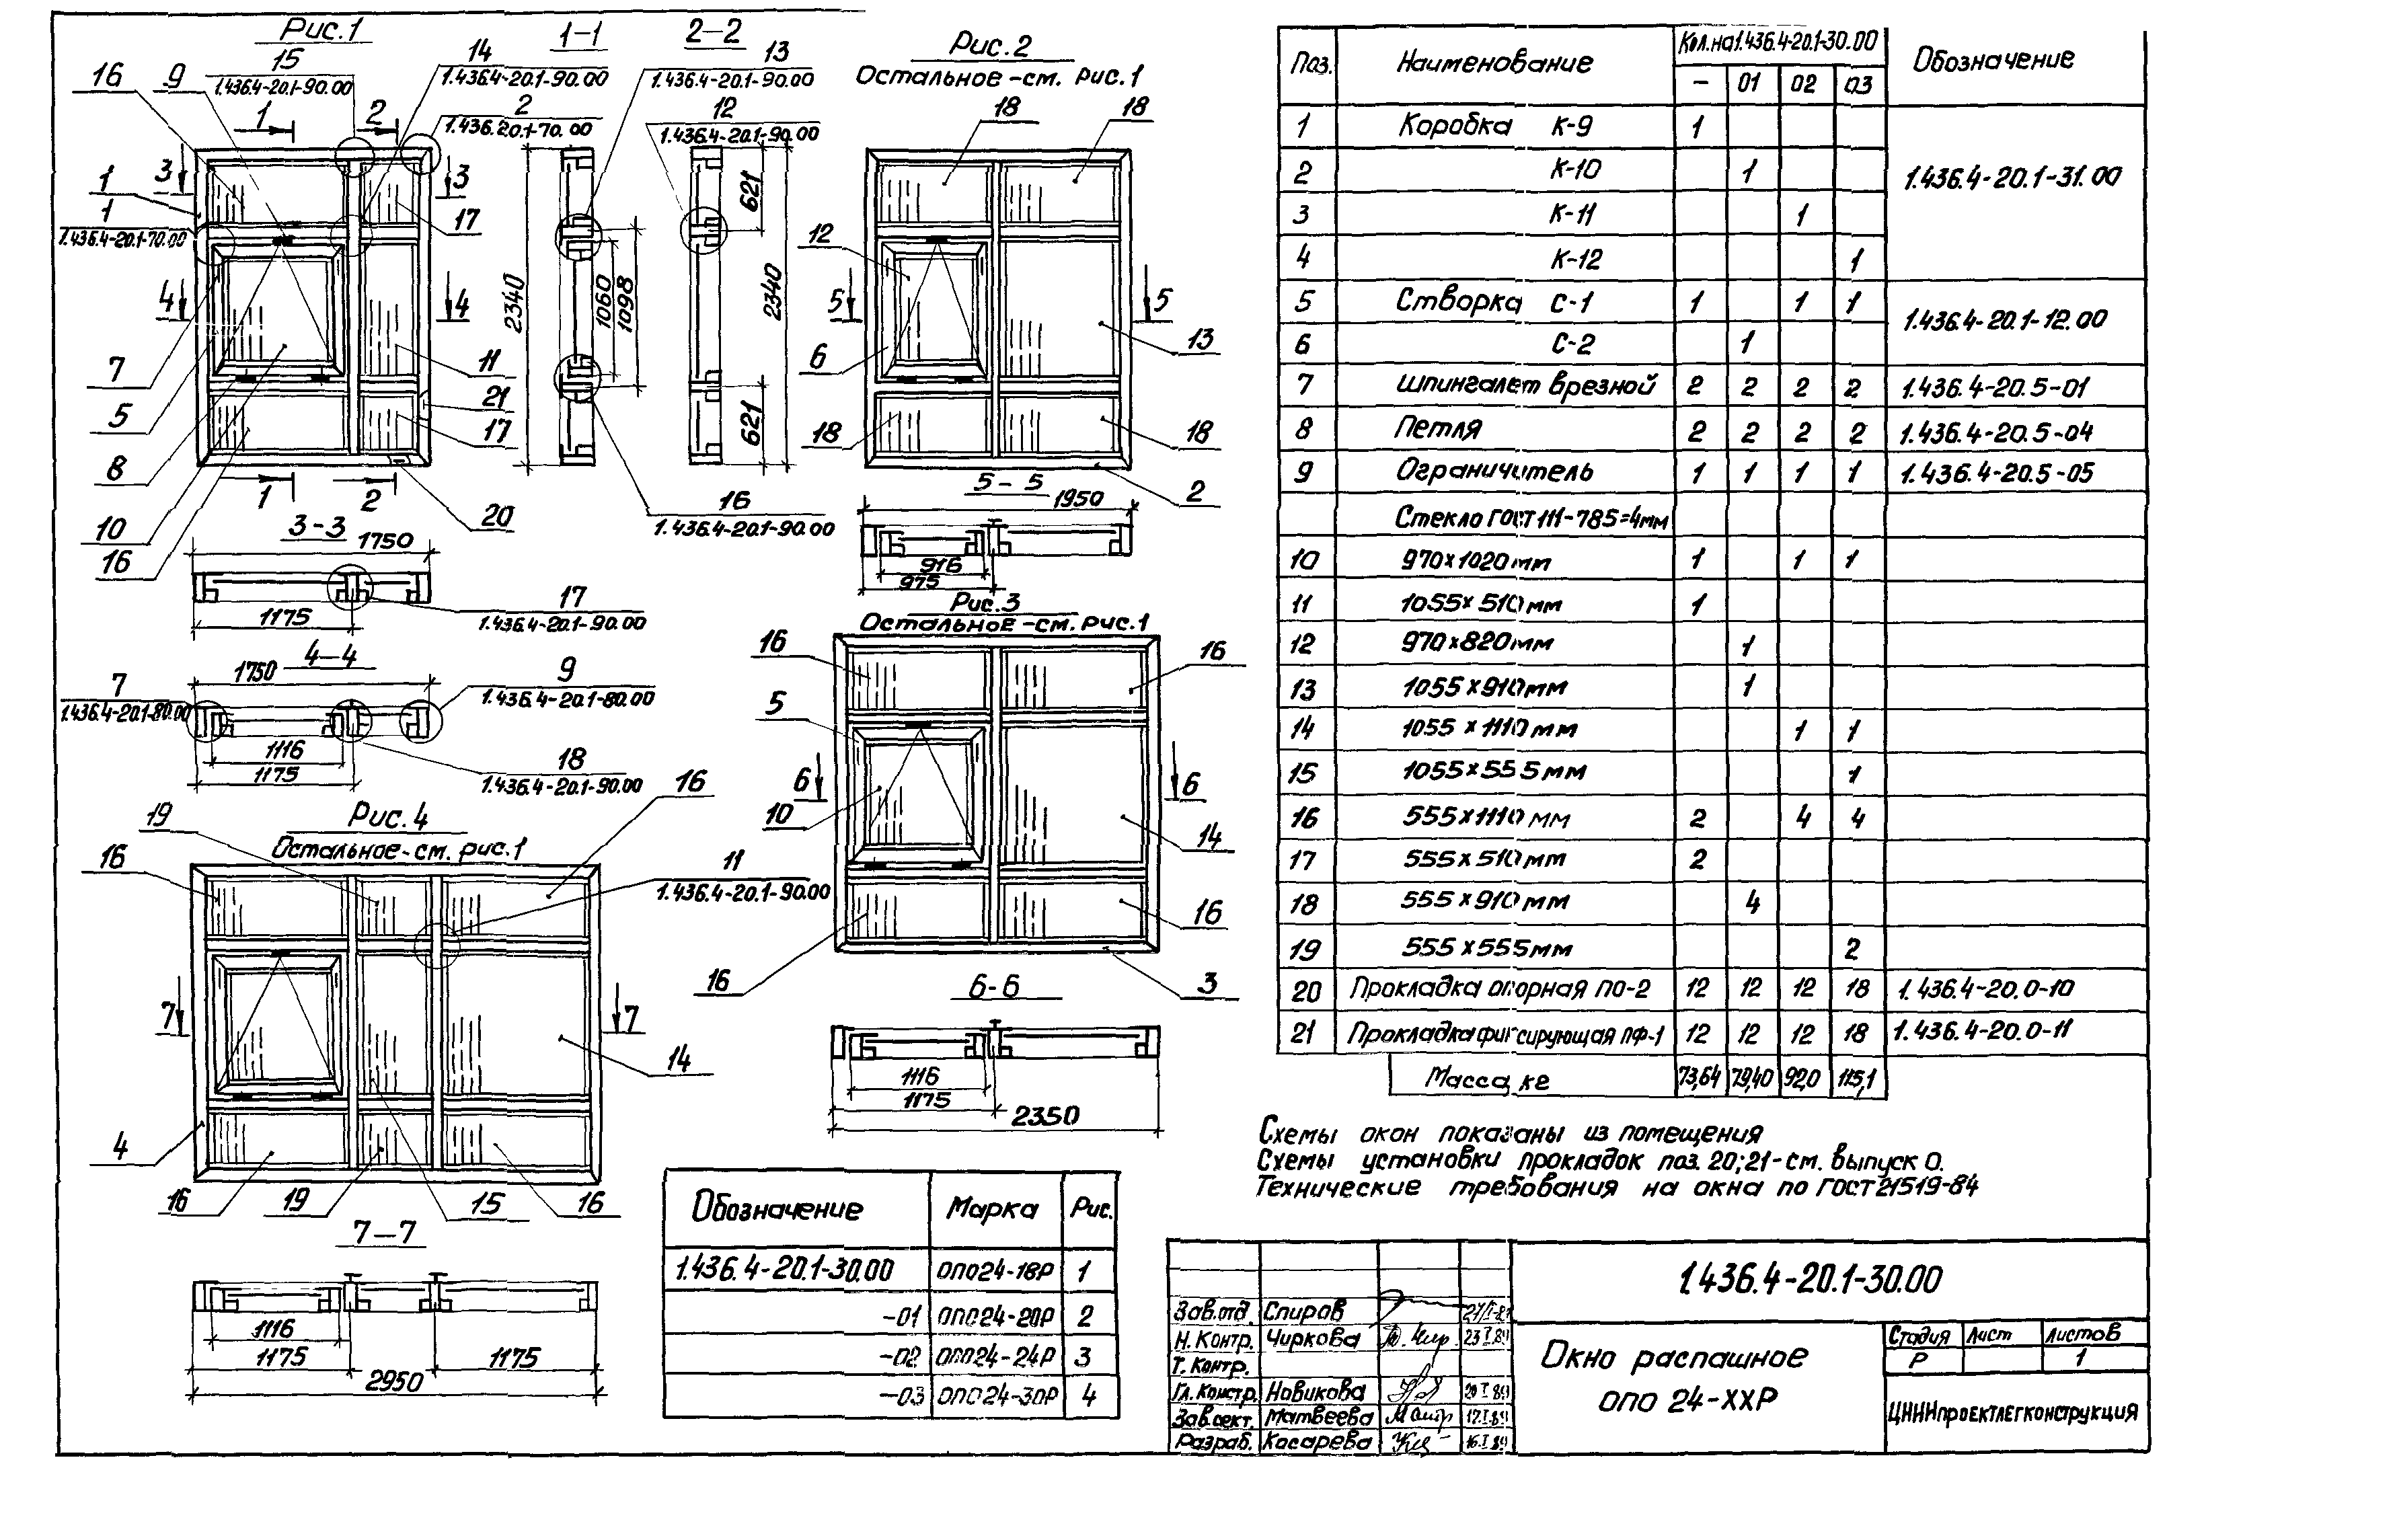 Рис.1
16
9
15
1.436.4-20.1-90.00
14
1.436.4-20.1-90.00
2
1.436.20.1-70.00
1
2
3
3
1
1
1.436.4-20.1-70.00
17
4
4
7
11
5
21
17
8
10
16
1
2
20
1-1
2-2
13
1.436.4-20.1-90.00
12
1.436.4-20.1-90.00
2340
1060
1098
621
2340
621
16
1.436.4-20.1-90.00
Рис.2
Остальное-см. рис.1
18
18
12
5
5
13
6
18
18
2
5-5
1950
916
975
3-3
1750
1175
17
1.436.4-20.1-90.00
4-4
1750
7
1.436.4-20.1-80.00
9
1.436.4-20.1-80.00
1116
1175
18
1.436.4-20.1-90.00
Рис.3
Остальное-см. рис.1
16
16
5
6
6
10
14
16
16
3
6-6
1116
1175
2350
Рис.4
Остальное-см. рис.1
19
16
16
11
1.436.4-20.1-90.00
7
7
14
4
16
19
15
16
7-7
1116
1175
1175
2950
Обозначение Марка Рис.
1.436.4-20.1-30.00 ОПО24-18Р 1
-01 ОПО24-20Р 2
-02 ОПО24-24Р 3
-03 ОПО24-30Р 4
Поз. Наименование Кол.на1.436.4-20.1-30.00 Обозначение
- 01 02 03
1 Коробка К-9 1
2 К-10 1 1.436.4-20.1-31.00
3 К-11 1
4 К-12 1
5 Створка С-1 1 1 1 1.436.4-20.1-12.00
6 С-2 1
7 Шпингалет врезной 2 2 2 2 1.436.4-20.5-01
8 Петля 2 2 2 2 1.436.4-20.5-04
9 Ограничитель 1 1 1 1 1.436.4-20.5-05
Стекло ГОСТ 111-785=4мм
10 970х1020мм 1 1 1
11 1055х510мм 1
12 970х820мм 1
13 1055х910мм 1
14 1055х1110мм 1 1
15 1055х555мм 1
16 555х1110мм 2 4 4
17 555х510мм 2
18 555х910мм 4
19 555х555мм 2
20 Прокладка опорная ПО-2 12 12 12 18 1.436.4-20.0-10
21 Прокладка фиксирующая ПФ-1 12 12 12 18 1.436.4-20.0-11
Масса, кг 73,64 79,40 92,0 115,1
Схемы окон показаны из помещения
Схемы установки прокладок поз. 20;21-см. выпуск 0.
Технические требования на окна по ГОСТ 21519-84
1.436.4-20.1-30.00
Зав.отд. Спиров
Н.Контр. Чиркова
Т.Контр.
Гл.Констр. Новикова
Зав.сект. Матвеева
Разраб. Косарева
Окно распашное
ОПО 24-ХХР
Стадия Лист Листов
Р 1
ЦНИИпроектлегконструкция